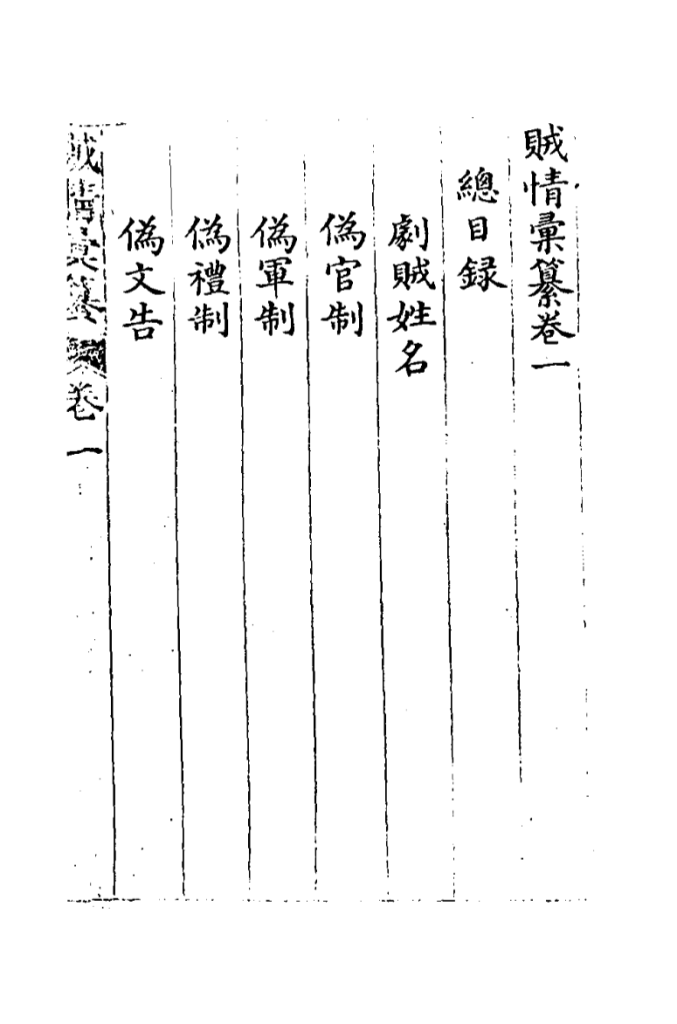 賊情彙纂卷一
總目錄
劇賊姓名
偽官制
偽軍制
偽禮制
偽文告
賊情彙纂
卷一